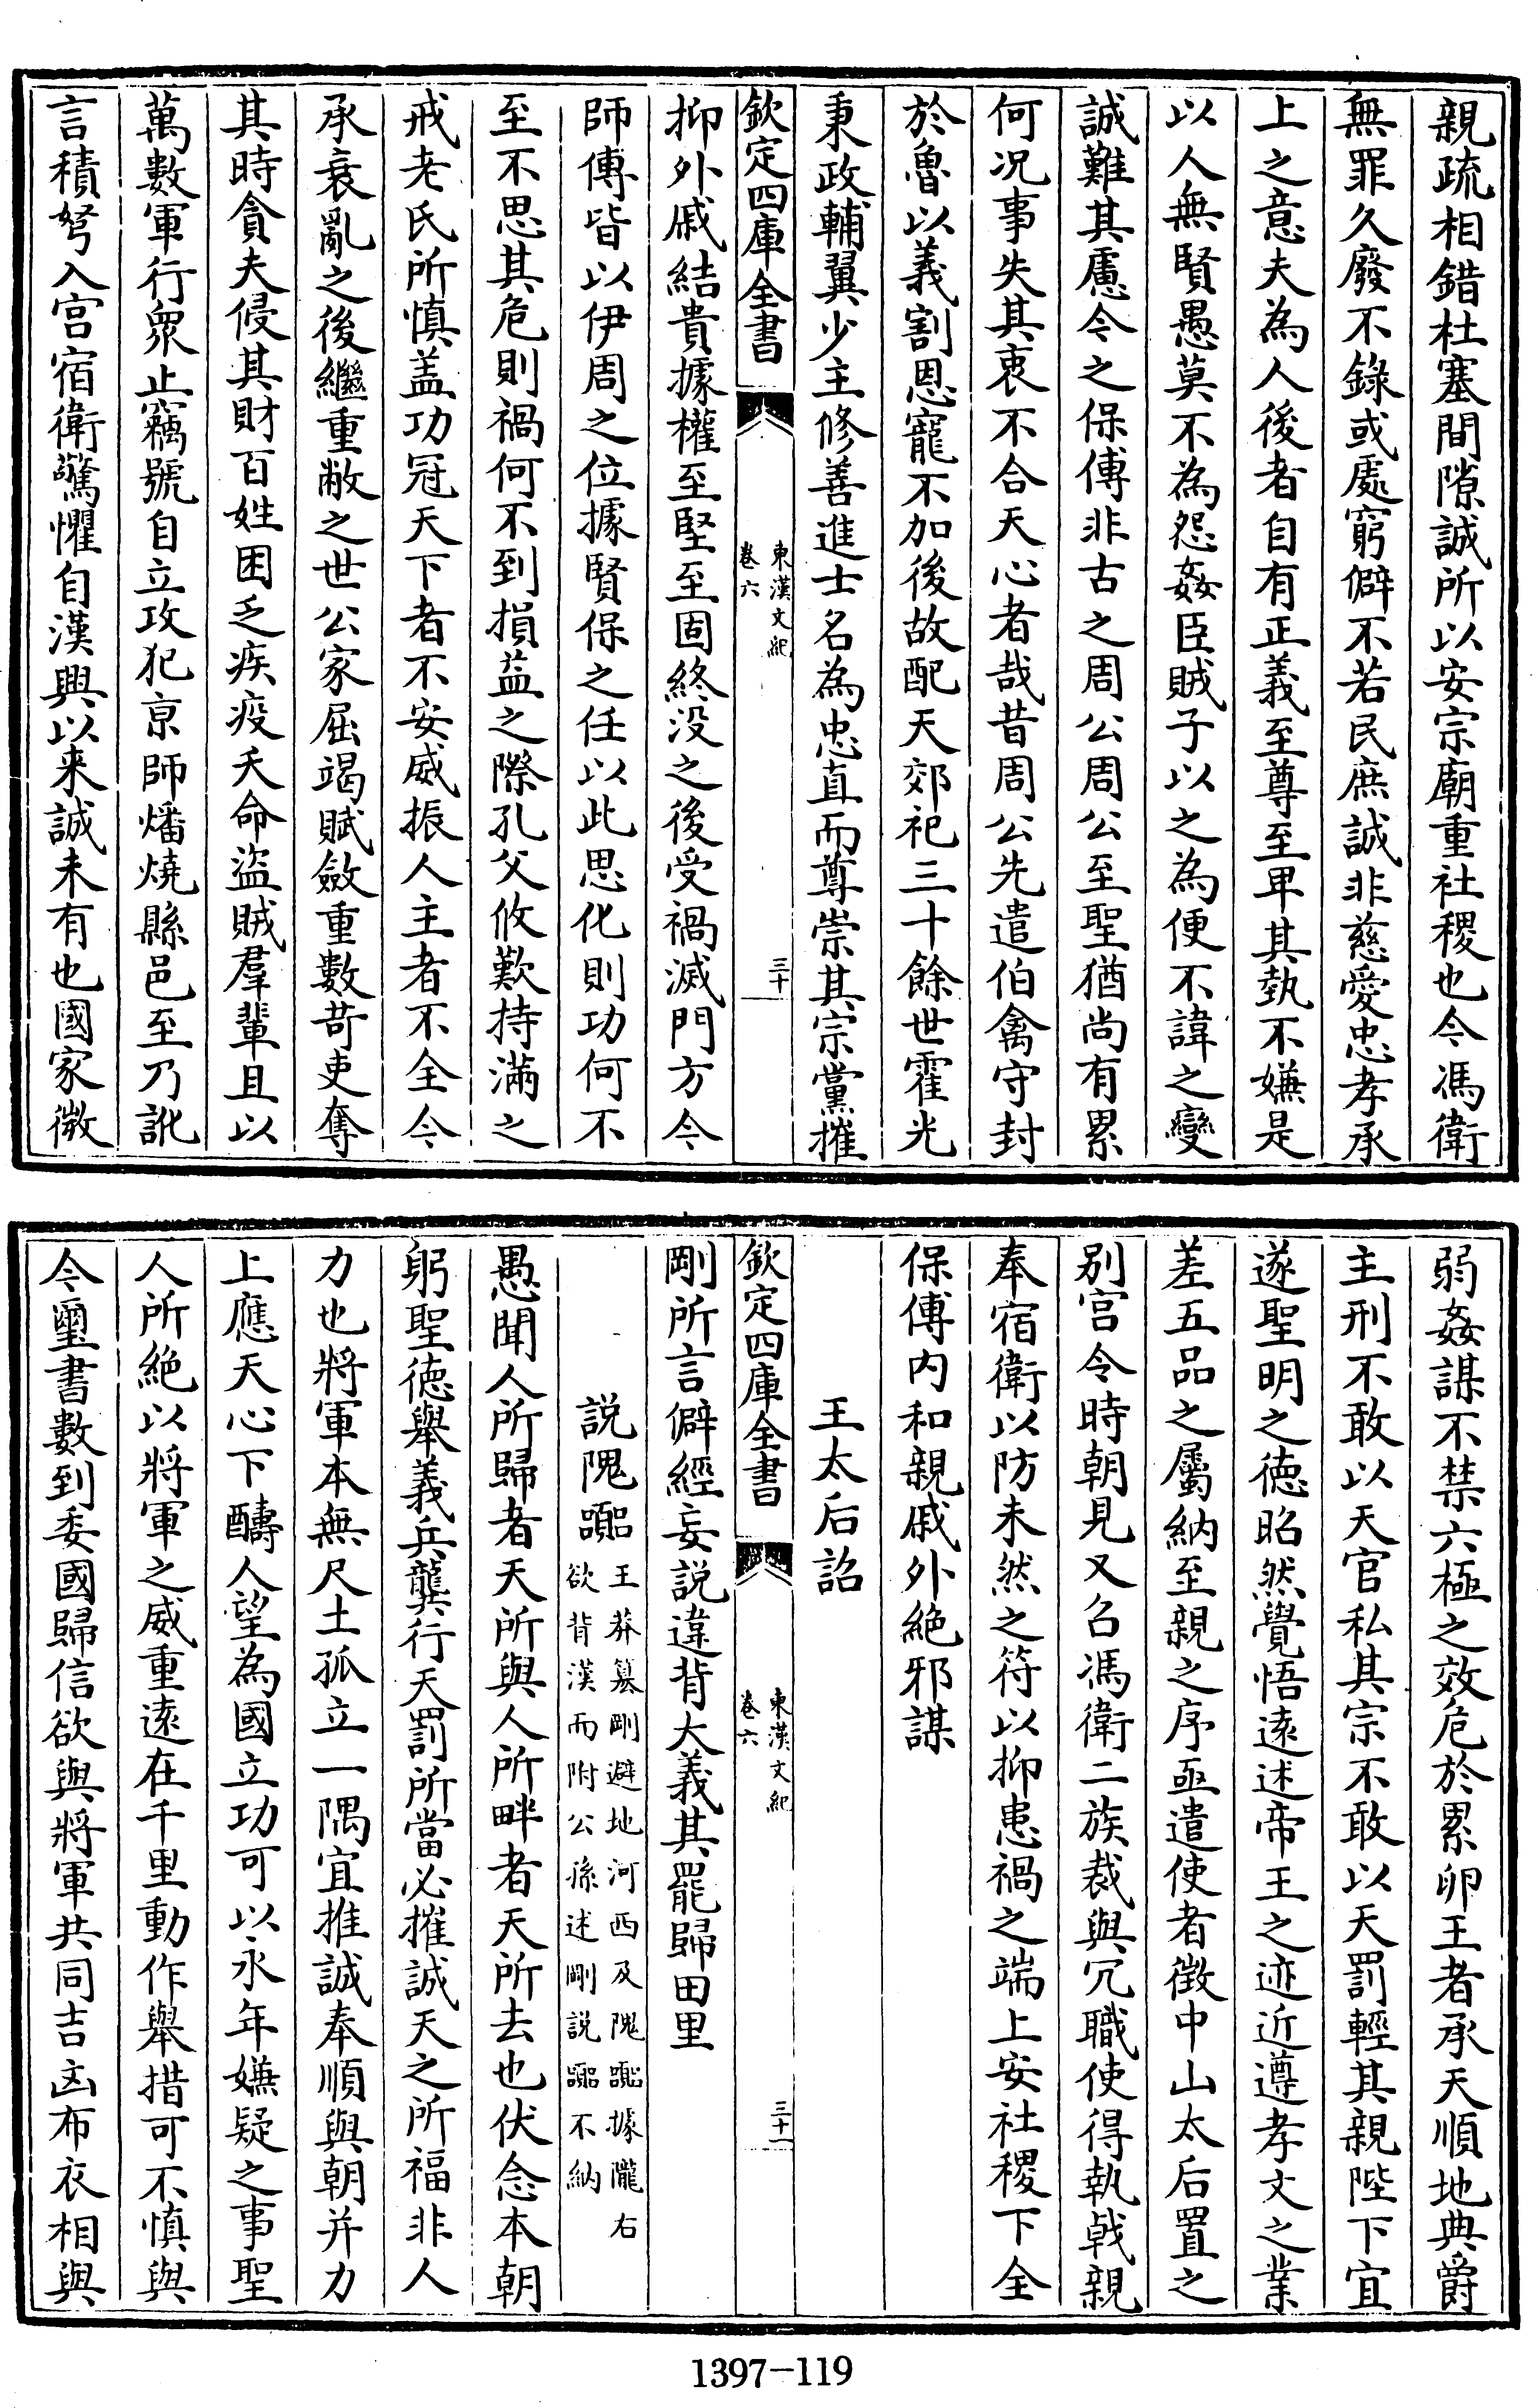 親疏相錯杜塞間隙誠所以安宗廟重社稷也今馮衛
無罪久廢不錄或處窮僻不若民庶誠非慈愛忠孝承
上之意夫為人後者自有正義至尊至卑其埶不嫌是
以人無賢愚莫不為怨姦臣賊子以之為便不諱之變
誠難其慮今之保傅非古之周公周公至聖猶尚有累
何况事失其衷不合天心者哉昔周公先遣伯禽守封
於魯以義割恩寵不加後故配天郊祀三十餘世霍光
秉政輔翼少主修善進士名為忠直而尊崇其宗黨摧
欽定四庫全書
東漢文紀
卷六
三十
抑外戚結貴據權至堅至固終没之後受禍滅門方今
師傅皆以伊周之位據賢保之任以此思化則功何不
至不思其危則禍何不到損益之際孔父攸歎持滿之
戒老氏所慎盖功冠天下者不安威振人主者不全今
承衰亂之後繼重敝之世公家屈竭賦斂重數苛吏奪
其時貪夫侵其財百姓困乏疾疫夭命盜賊羣輩且以
萬數軍行衆止竊號自立攻犯京師燔燒縣邑至乃訛
言積弩入宫宿衛驚懼自漢興以来誠未有也國家微
弱姦謀不禁六極之效危於累卵王者承天順地典爵
主刑不敢以天官私其宗不敢以天罰輕其親陛下宜
遂聖明之徳昭然覺悟遠述帝王之迹近遵孝文之業
差五品之屬納至親之序亟遣使者徵中山太后置之
别宫令時朝見又召馮衛二族裁與冗職使得執㦸親
奉宿衛以防未然之符以抑患禍之端上安社稷下全
保傅内和親戚外絶邪謀
王太后詔
欽定四庫全書
東漢文紀
卷六
三十一
剛所言僻經妄説違背大義其罷歸田里
説隗囂
王莽簒剛避地河西及隗囂據隴右
欲背漢而附公孫述剛説囂不納
愚聞人所歸者天所與人所畔者天所去也伏念本朝
躬聖徳舉義兵龔行天罰所當必摧誠天之所福非人
力也將軍本無尺土孤立一隅宜推誠奉順與朝并力
上應天心下醻人望為國立功可以永年嫌疑之事聖
人所絶以將軍之威重遠在千里動作舉措可不慎與
今璽書數到委國歸信欲與將軍共同吉凶布衣相與
1397-119